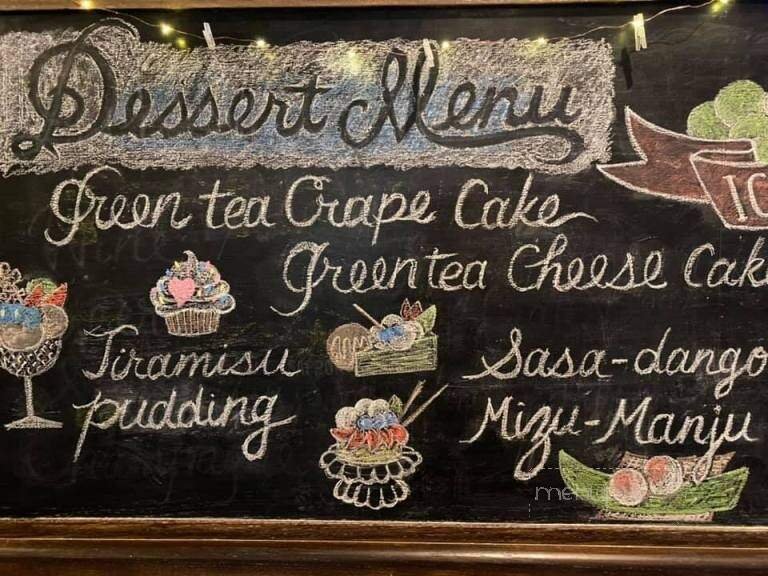 Dessert Menu
IC
Green tea Crape Cake
Green tea Cheese Cake
Tiramisu
pudding
Sasa-dango
Mizu-Manju